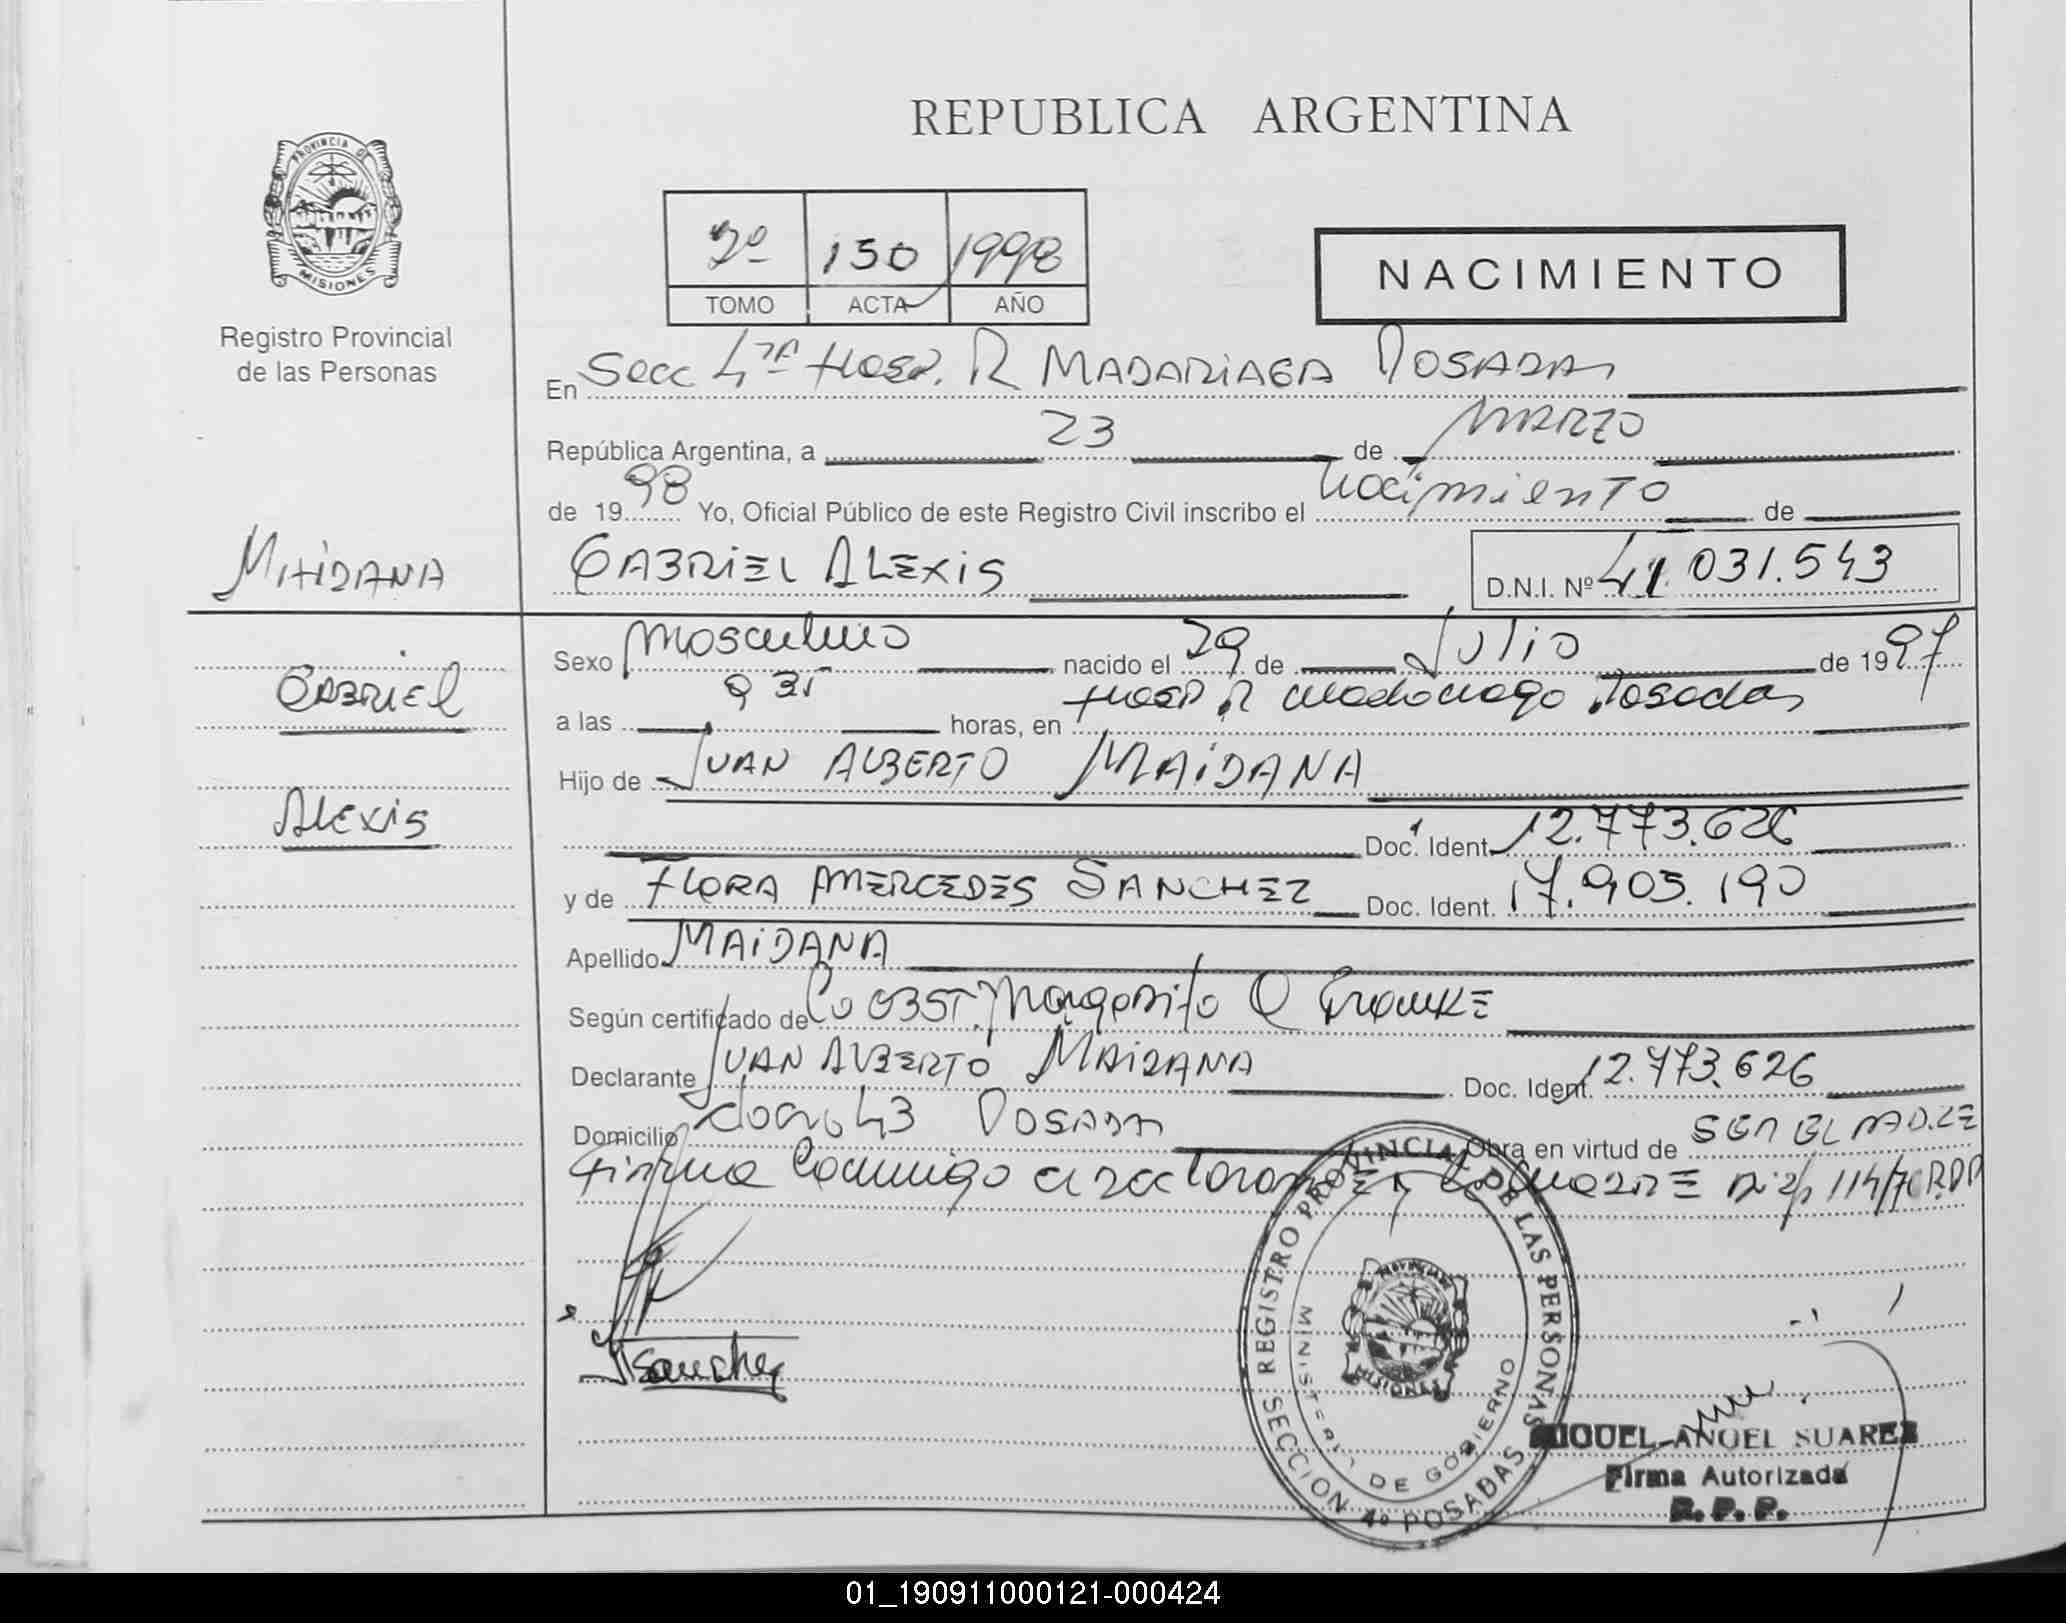 REPUBLICA ARGENTINA
PROVINCIA DE
MISIONES
Registro Provincial
de las Personas
2º 150 1998
TOMO ACTA AÑO
NACIMIENTO
En Secc 4ta Hosp. R MADARIAGA POSADAS
República Argentina, a 23 de MARZO
de 1998 Yo, Oficial Público de este Registro Civil inscribo el nacimiento de
MAIDANA
GABRIEL ALEXIS
D.N.I. Nº 41.031.543
GABRIEL
ALEXIS
Sexo masculino nacido el 29 de Julio de 1997
a las 9 35 horas, en Hosp R Madariaga Posadas
Hijo de JUAN ALBERTO MAIDANA
Doc. Ident. 12.773.626
y de FLORA MERCEDES SANCHEZ Doc. Ident. 17.905.190
Apellido MAIDANA
Según certificado de OBST. Margarita
Declarante JUAN ALBERTO MAIDANA Doc. Ident. 12.773.626
Domicilio 43 POSADAS Obra en virtud de SER EL PADRE
Firma conmigo el declarante 114/
Sanchez
REGISTRO PROVINCIAL DE LAS PERSONAS
MINISTERIO DE GOBIERNO
MISIONES
SECCION 4º POSADAS
MIGUEL ANGEL SUAREZ
Firma Autorizada
R. P. P.
01_190911000121-000424